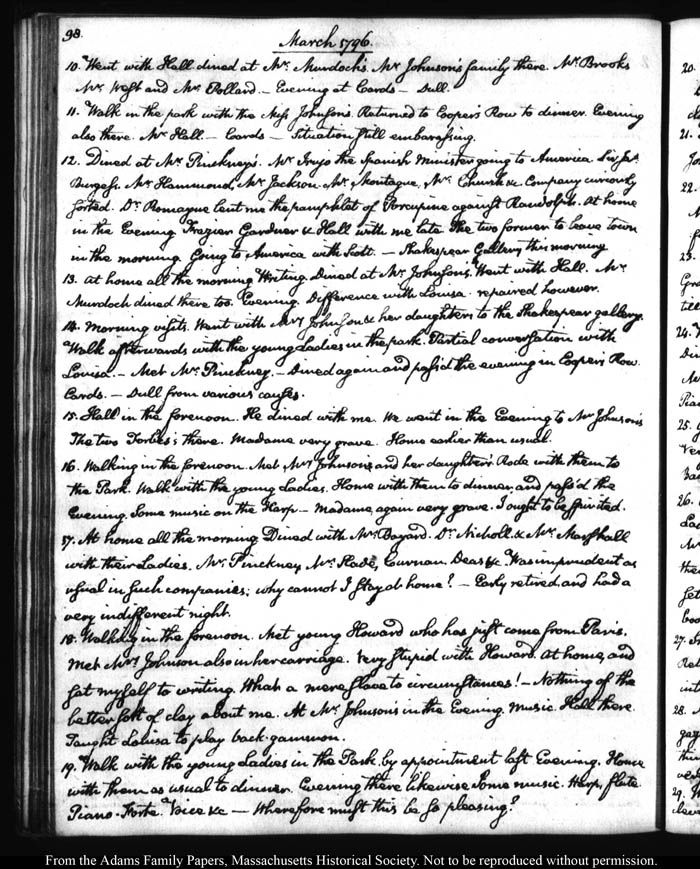 98.
March 1796.
10. Went with Hall dined at Mr. Murdoch's. Mr Johnson's family there. Mr. Brooks
Mr. West and Mr. Pollard. — Evening at Cards — Dull.
11. Walk in the park with the Miss Johnsons. Returned to Cooper's Row to dinner. Evening
also there. Mr. Hall. — Cards — Situation still embarassing.
12. Dined at Mr. Pinckney's. Mr Irujo the Spanish Minister going to America Sir Jas.
Burgess. Mr Hammond, Mr Jackson. Mr. Montague, Mr. &c. Company curiously
sorted. Dr. Romayne lent me the pamphlet of Porcupine against Randolph. At home
in the Evening Frazier Gardner & Hall with me late. The two former to leave town
in the morning. Going to America with Scott. — Shakespear Gallery this morning
13. At home all the morning. Writing. Dined at Mr. Johnsons. Went with Hall. Mr.
Murdoch dined there too. Evening. Difference with Louisa. repaired however.
14. Morning visits. Went with Mrs Johnson & her daughters to the Shakespear gallery.
Walk afterwards with the young Ladies in the park. Partial conversation with
Louisa. — Met Mr. Pinckney. — Dined again and pass'd the evening in Cooper's Row.
Cards. — Dull from various causes.
15. Hall in the forenoon. He dined with me. We went in the Evening to Mr Johnson's
The two Forbes's there. Madame very grave. Home earlier than usual.
16. Walking in the forenoon. Met Mrs Johnson and her daughters. Rode with them to
the Park. Walk with the young Ladies. Home with them to dinner, and pass'd the
Evening. Some music on the Harp — Madame again very grave. I ought to be spirited.
17. At home all the morning. Dined with Mr. Bayard. Dr. Nicholl & Mr. Marshall
with their Ladies. Mr. Pinckney, Mr. Slade, Curwan, Deas &c. Was imprudent as
usual in such companies; why cannot I stay at home? — Early retired, and had a
very indifferent night.
18. Walking in the forenoon. Met young Howard who has just come from Paris.
Met Mrs Johnson also in her carriage. Very stupid with Howard. At home, and
sat myself to writing. What a mere slave to circumstances! — Nothing of the
better sort of clay about me. At Mr. Johnson's in the Evening. Music. Hall there.
Taught Louisa to play back-gammon.
19. Walk with the young Ladies in the Park by appointment last Evening. Home
with them as usual to dinner. Evening there likewise. Some music. Harp, flute
Piano-Forte. Voice &c — Wherefore must this be so pleasing?
20.
21.
22.
23.
24.
25.
26.
27.
28.
29.
From the Adams Family Papers, Massachusetts Historical Society. Not to be reproduced without permission.